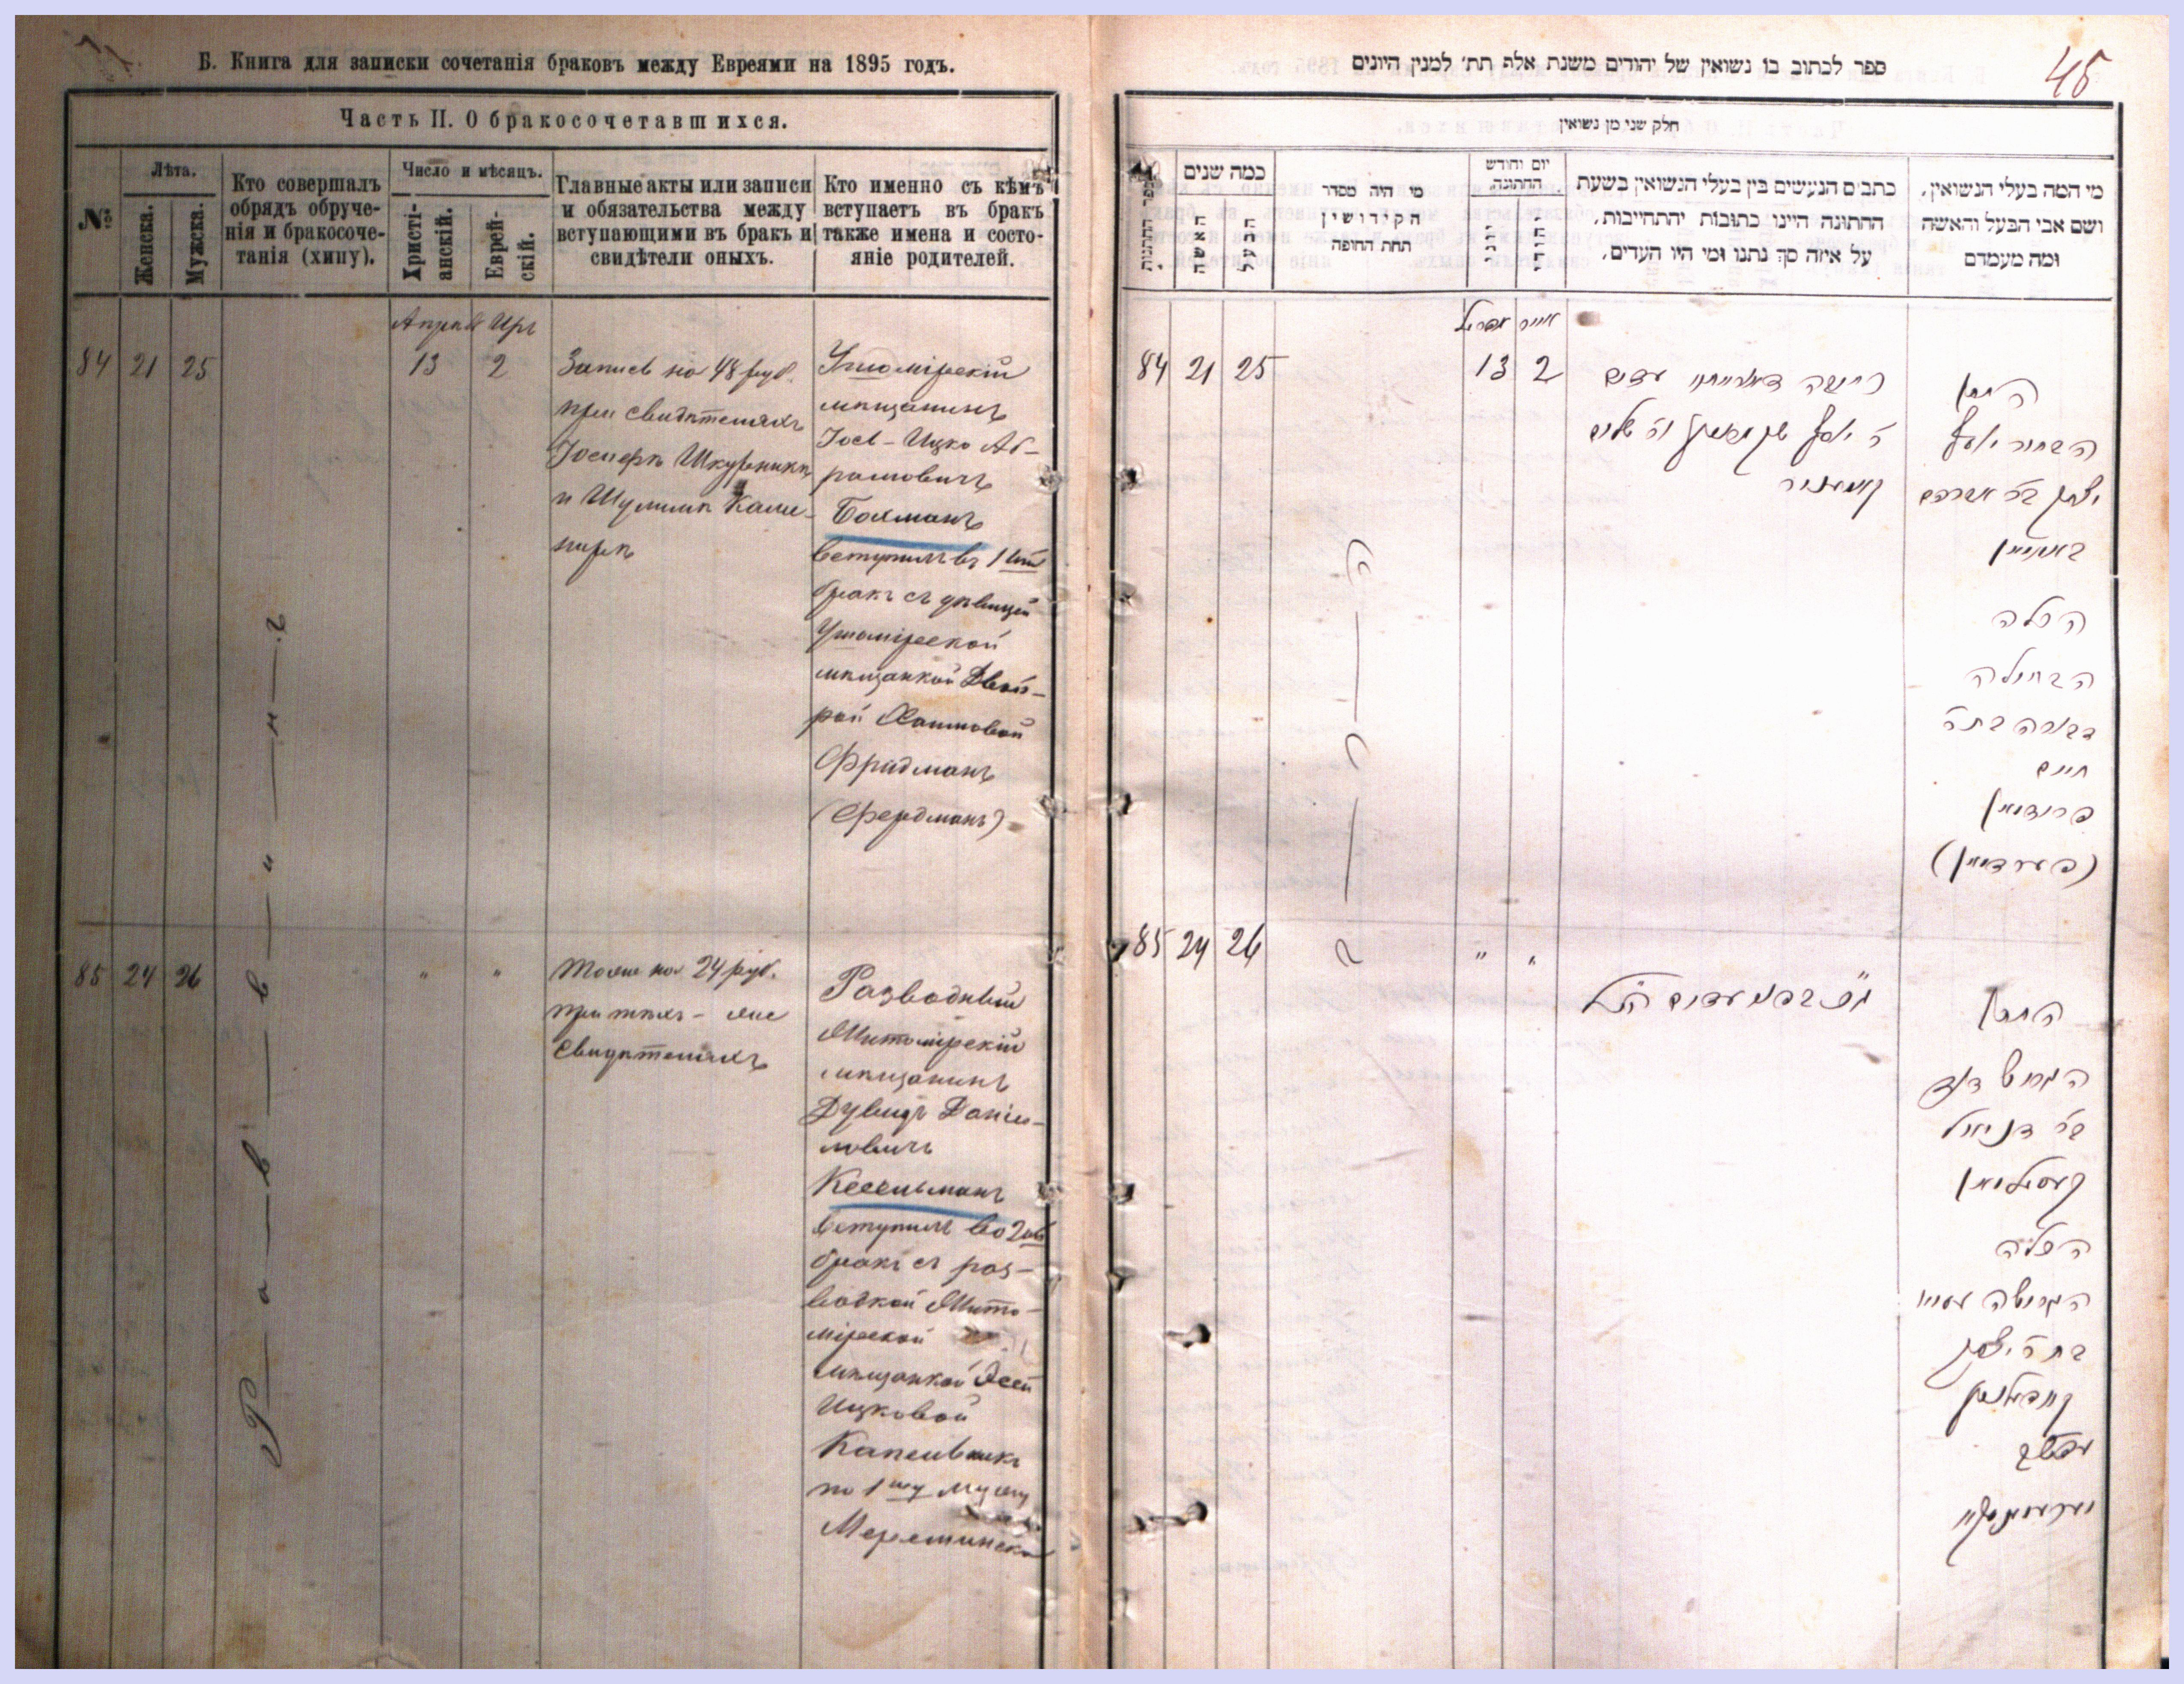 Б. Книга для записки сочетанія браковъ между Евреями на 1895 годъ.
Часть II. О бракосочетавшихся.
№
Лѣта.
Женска.
Мужска.
Кто совершалъ
обрядъ обруче-
нія и бракосоче-
танія (хипу).
Число и мѣсяцъ.
Христі-
анскій.
Еврей-
скій.
Главные акты или записи
и обязательства между
вступающими въ бракъ и
свидѣтели оныхъ.
Кто именно съ кѣмъ
вступаетъ въ бракъ
также имена и состо-
яніе родителей.
84 21 25
Р-а-в-в-и-н-ъ
13 2
Запись на 48 руб.
при свидѣтеляхъ
Іосифѣ Шкурникѣ
и Шулимѣ Каме-
нирѣ
Ушомірскій
мѣщанинъ
Іось-Ицко Аб-
рамовичъ
Бохманъ
вступилъ въ 1ый
бракъ съ дѣвицей
Ушомірской
мѣщанкой Двой-
рой Хаимовой
Фридманъ
(Фердманъ)
85 24 26
" "
Тоже на 24 руб.
при тѣхъ-же
свидѣтеляхъ
Разводный
Житомірскій
мѣщанинъ
Дувидъ Даніи-
ловичъ
Кесельманъ
вступилъ во 2ой
бракъ съ раз-
водкой Жито-
мірской
мѣщанкой
Ицковой
по 1му мужу
ספר לכתוב בו נשואין של יהודים משנת אלף תת׳ למנין היונים
45
חלק שני מן נשואין
מספר החתונות
כמה שנים
האשה
הבעל
מי היה מסדר
הקידושין
תחת החופה
יום וחודש
החתונה.
יוני
יהודי
כתבים הנעשים בין בעלי הנשואין בשעת
החתונה היינו כתובות יהתחייבות,
על איזה סך נתנו ומי היו העדים,
מי המה בעלי הנשואין,
ושם אבי הבעל והאשה
ומה מעמדם
אפריל אייר
84 21 25
13 2
החתן
הבחור יוסף
יצחק בר אברהם
באכמאן
הכלה
הבתולה
דבורה בת ר׳
חיים
פרידמאן
(פערדמאן)
85 24 26
" "
החתן
הגרוש דוד
בר דניאל
קעסילמאן
הכלה
הגרושה
בת ר׳ יצחק